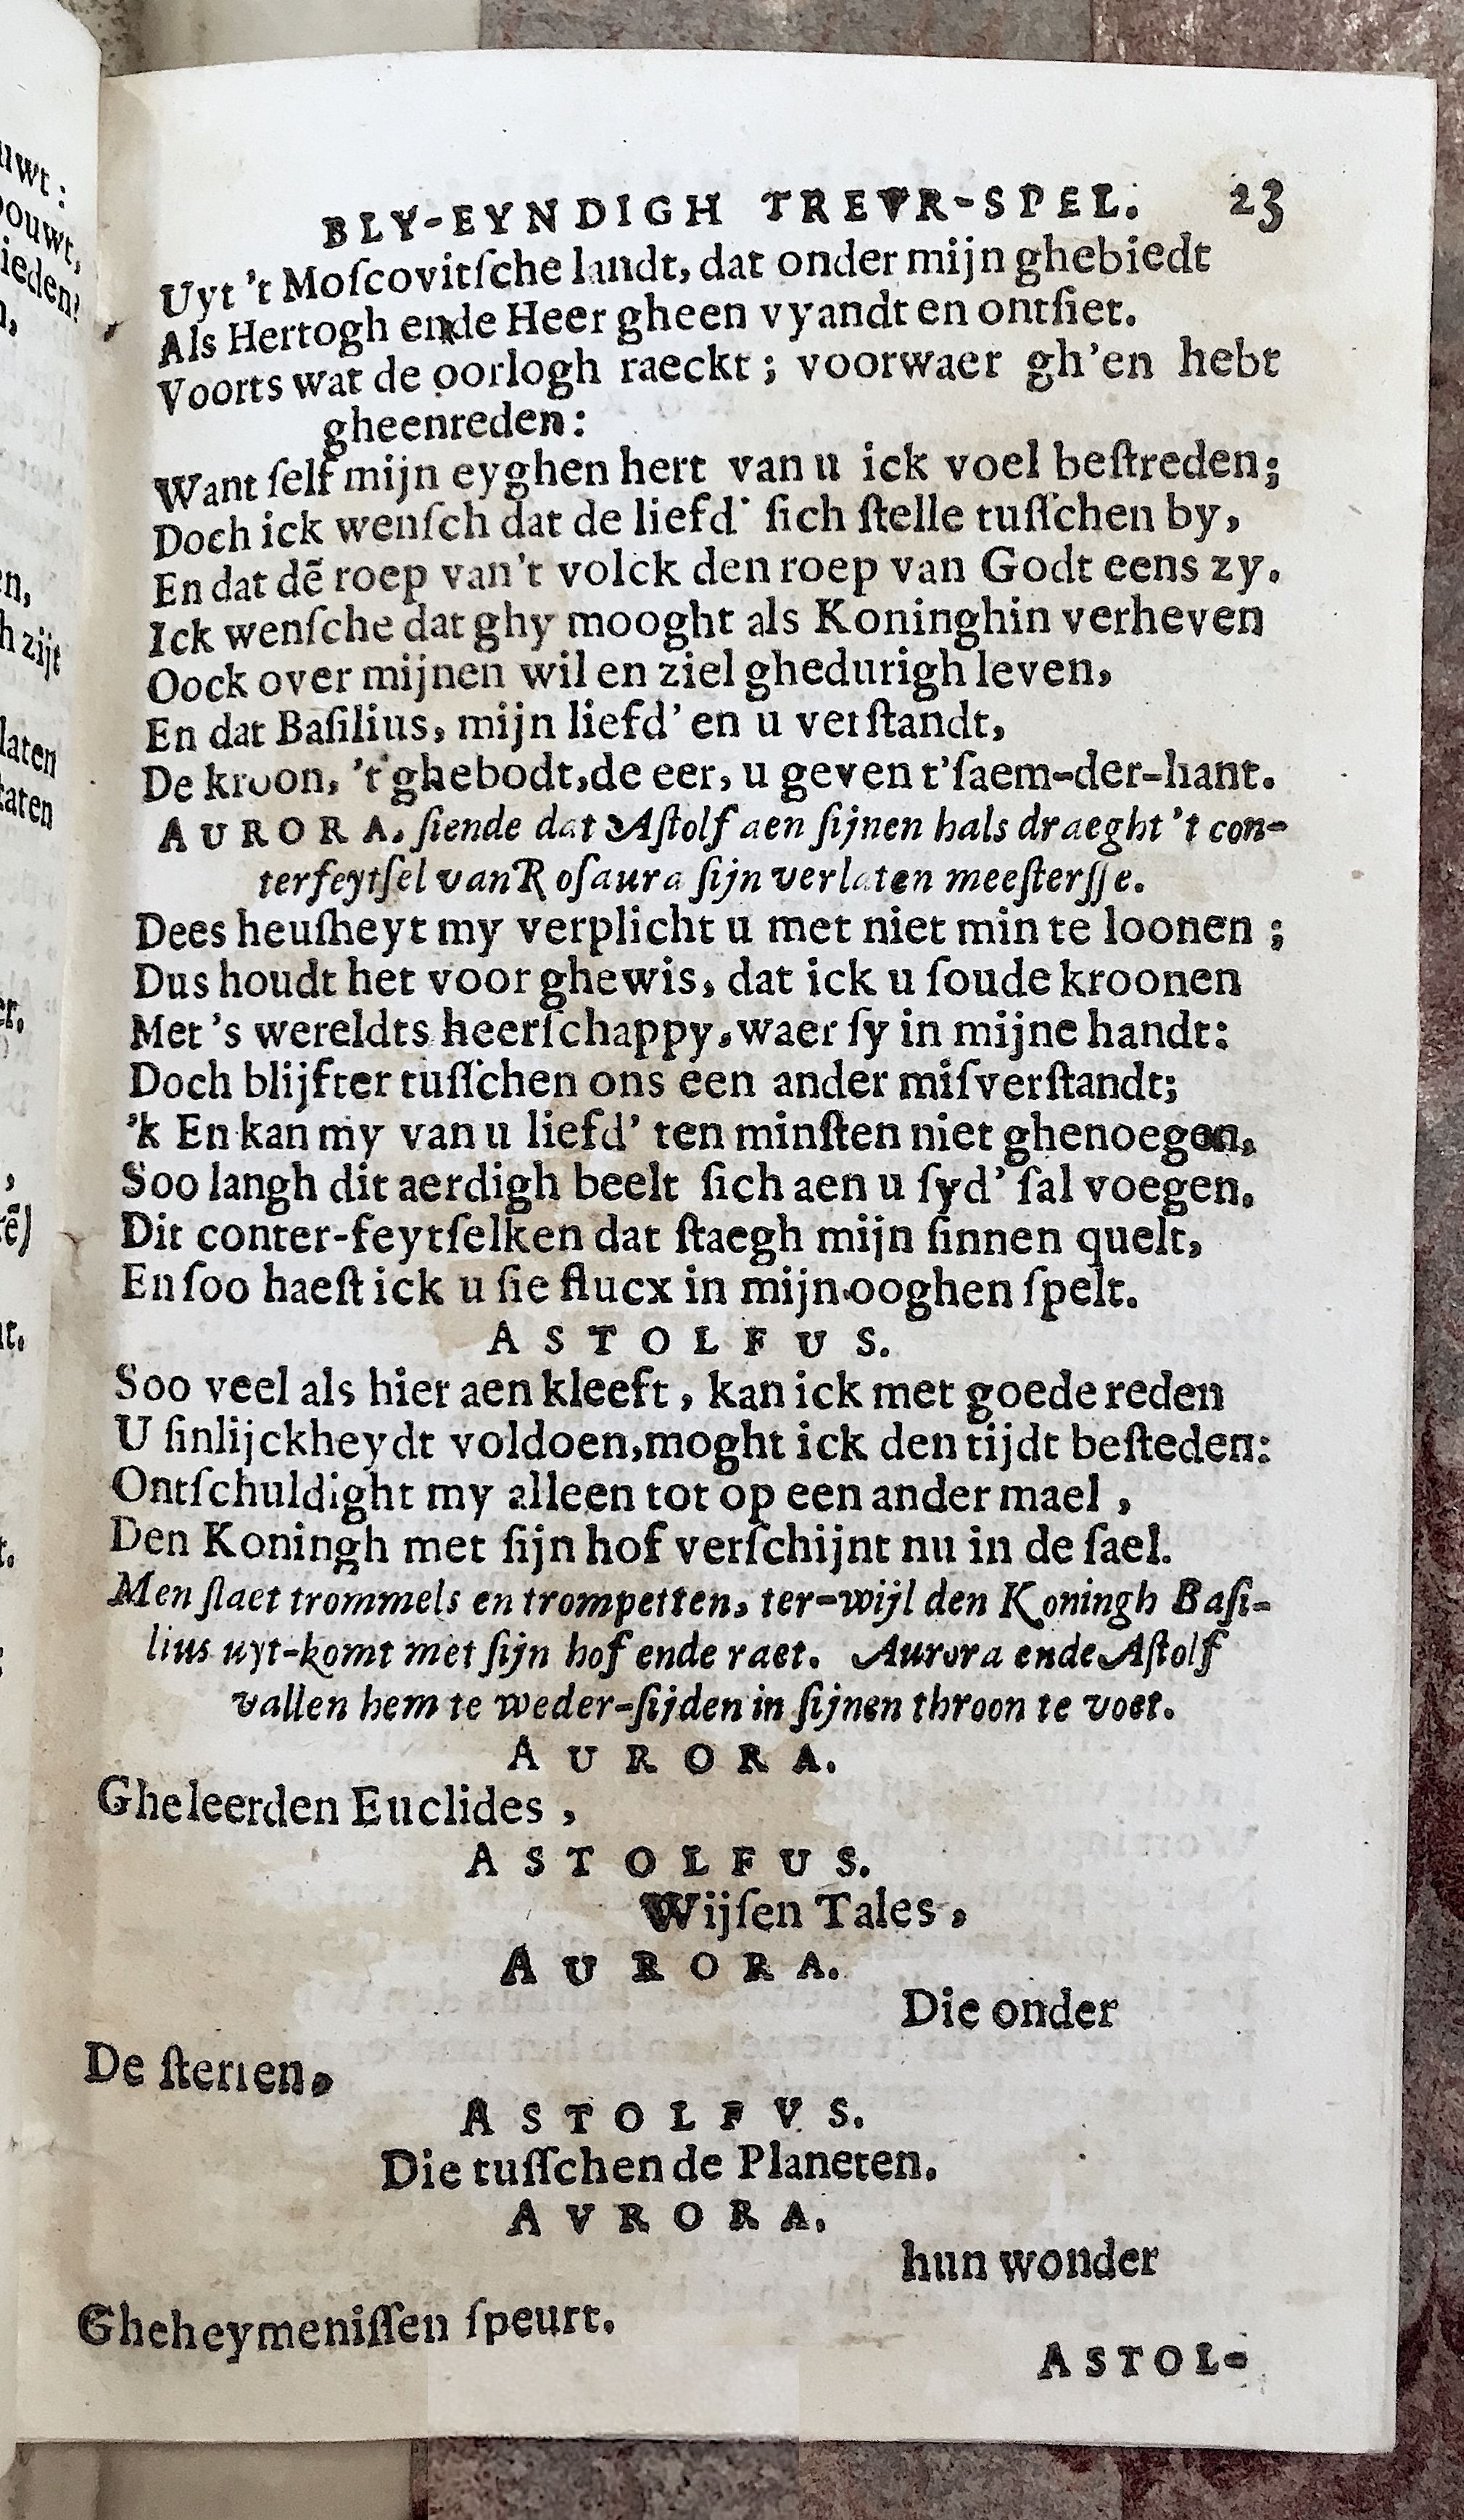 BLY-EYNDIGH TREVR-SPEL. 23
Uyt 't Moſcovitſche landt, dat onder mijn ghebiedt
Als Hertogh ende Heer gheen vyandt en ontſiet.
Voorts wat de oorlogh raeckt; voorwaer gh'en hebt
gheenreden:
Want ſelf mijn eyghen hert van u ick voel beſtreden;
Doch ick wenſch dat de liefd' ſich ſtelle tuſſchen by,
En dat dẽ roep van't volck den roep van Godt eens zy.
Ick wenſche dat ghy mooght als Koninghin verheven
Oock over mijnen wil en ziel ghedurigh leven,
En dat Baſilius, mijn liefd' en u verſtandt,
De kroon, 't ghebodt, de eer, u geven t'ſaem-der-hant.
AURORA. ſiende dat Aſtolf aen ſijnen hals draeght 't con-
terfeytſel van Roſaura ſijn verlaten meeſterſſe.
Dees heuſheyt my verplicht u met niet min te loonen;
Dus houdt het voor ghewis, dat ick u ſoude kroonen
Met 's wereldts heerſchappy, waer ſy in mijne handt:
Doch blijfter tuſſchen ons een ander miſverſtandt;
'k En kan my van u liefd' ten minſten niet ghenoegen,
Soo langh dit aerdigh beelt ſich aen u ſyd' ſal voegen.
Dit conter-feytſelken dat ſtaegh mijn ſinnen quelt,
En ſoo haeſt ick u ſie flucx in mijn ooghen ſpelt.
ASTOLFUS.
Soo veel als hier aen kleeft, kan ick met goede reden
U ſinlijckheydt voldoen, moght ick den tijdt beſteden:
Ontſchuldight my alleen tot op een ander mael,
Den Koningh met ſijn hof verſchijnt nu in de ſael.
Men ſlaet trommels en trompetten, ter-wijl den Koningh Baſi-
lius uyt-komt met ſijn hof ende raet. Aurora ende Aſtolf
vallen hem te weder-ſijden in ſijnen throon te voet.
AURORA.
Gheleerden Euclides,
ASTOLFUS.
Wijſen Tales,
AURORA.
Die onder
De ſterren,
ASTOLFVS.
Die tuſſchen de Planeten.
AVRORA.
hun wonder
Gheheymeniſſen ſpeurt.
ASTOL-